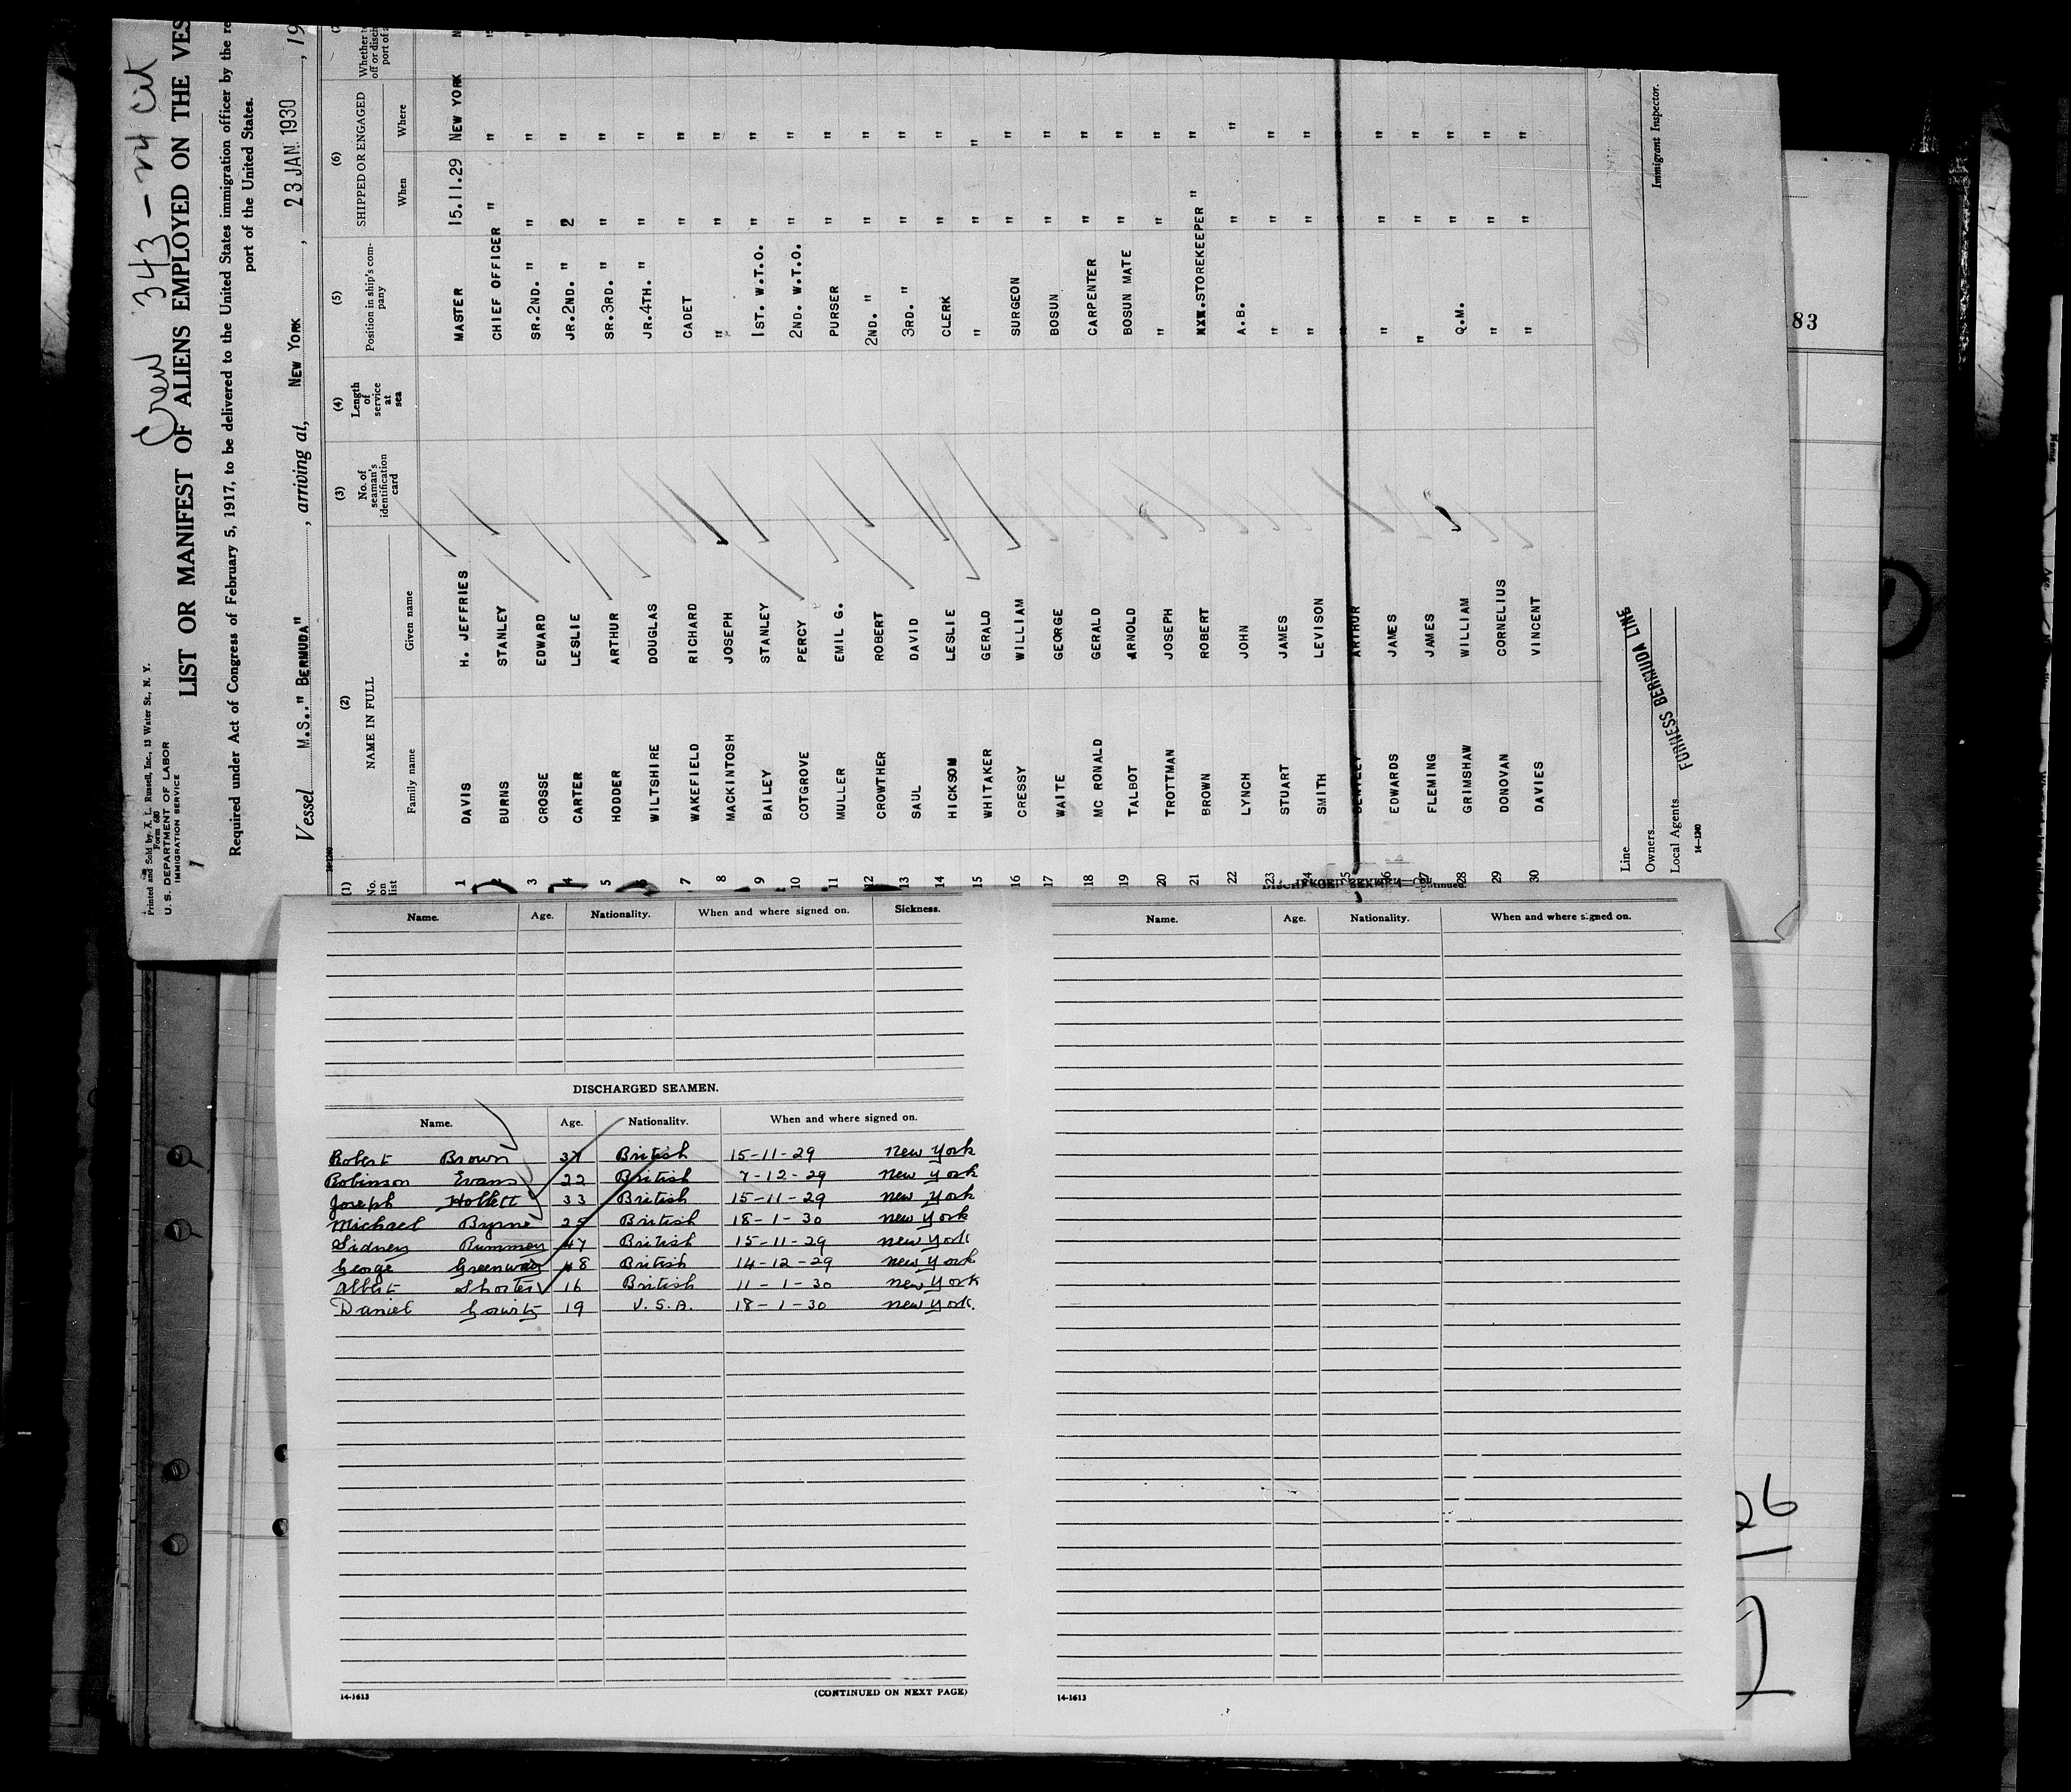 Printed and Sold by A. L. Russell, Inc., 13 Water St., N. Y.
Form 680
U. S. DEPARTMENT OF LABOR
IMMIGRATION SERVICE
1
Crew 343 -
LIST OR MANIFEST OF ALIENS EMPLOYED ON THE VES
Required under Act of Congress of February 5, 1917, to be delivered to the United States immigration officer by the re
port of the United States.
Vessel M.S.." BERMUDA" , arriving at, NEW YORK , 23 JAN. 1930 , 19
(1) (2) (3) (4) (5) (6)
No. on list NAME IN FULL No. of seaman's identification card Length of service at sea Position in ship's company SHIPPED OR ENGAGED
Family name Given name When Where
1 DAVIS H. JEFFRIES MASTER 15.11.29 NEW YORK
2 BURNS STANLEY CHIEF OFFICER " "
3 CROSSE EDWARD SR.2ND. " " "
4 CARTER LESLIE JR.2ND. " 2 "
5 HODDER ARTHUR SR.3RD. " " "
6 WILTSHIRE DOUGLAS JR.4TH. " " "
7 WAKEFIELD RICHARD CADET " "
8 MACKINTOSH JOSEPH " " "
9 BAILEY STANLEY 1ST. W.T.O. " "
10 COTGROVE PERCY 2ND. W.T.O. " "
11 MULLER EMIL G. PURSER " "
12 CROWTHER ROBERT 2ND. " " "
13 SAUL DAVID 3RD. " " "
14 HICKSON LESLIE CLERK " "
15 WHITAKER GERALD " "
16 CRESSY WILLIAM SURGEON " "
17 WAITE GEORGE BOSUN " "
18 MC RONALD GERALD CARPENTER " "
19 TALBOT ARNOLD BOSUN MATE " "
20 TROTTMAN JOSEPH " " "
21 BROWN ROBERT STOREKEEPER " "
22 LYNCH JOHN A.B. " "
23 STUART JAMES " " "
24 SMITH LEVISON " " "
25 ARTHUR
26 EDWARDS JAMES " " "
27 FLEMING JAMES " " "
28 GRIMSHAW WILLIAM Q.M. " "
29 DONOVAN CORNELIUS " " "
30 DAVIES VINCENT " " "
Line
Owners
Local Agents
FURNESS BERMUDA LINE
14-1240
Immigrant Inspector.
83
Name. Age. Nationality. When and where signed on. Sickness.
DISCHARGED SEAMEN.
Name. Age. Nationality. When and where signed on.
Robert Brown 37 British 15-11-29 New York
Robinson Evans 22 British 7-12-29 New York
Joseph Hollett 33 British 15-11-29 New York
Michael Byrne 25 British 18-1-30 New York
Sidney Rummey 47 British 15-11-29 New York
George Greenway 48 British 14-12-29 New York
Albert Shorter 16 British 11-1-30 New York
Daniel 19 U.S.A. 18-1-30 New York.
14-1613
(CONTINUED ON NEXT PAGE)
DISCHARGED SEAMEN—Continued.
Name. Age. Nationality. When and where signed on.
14-1613
26